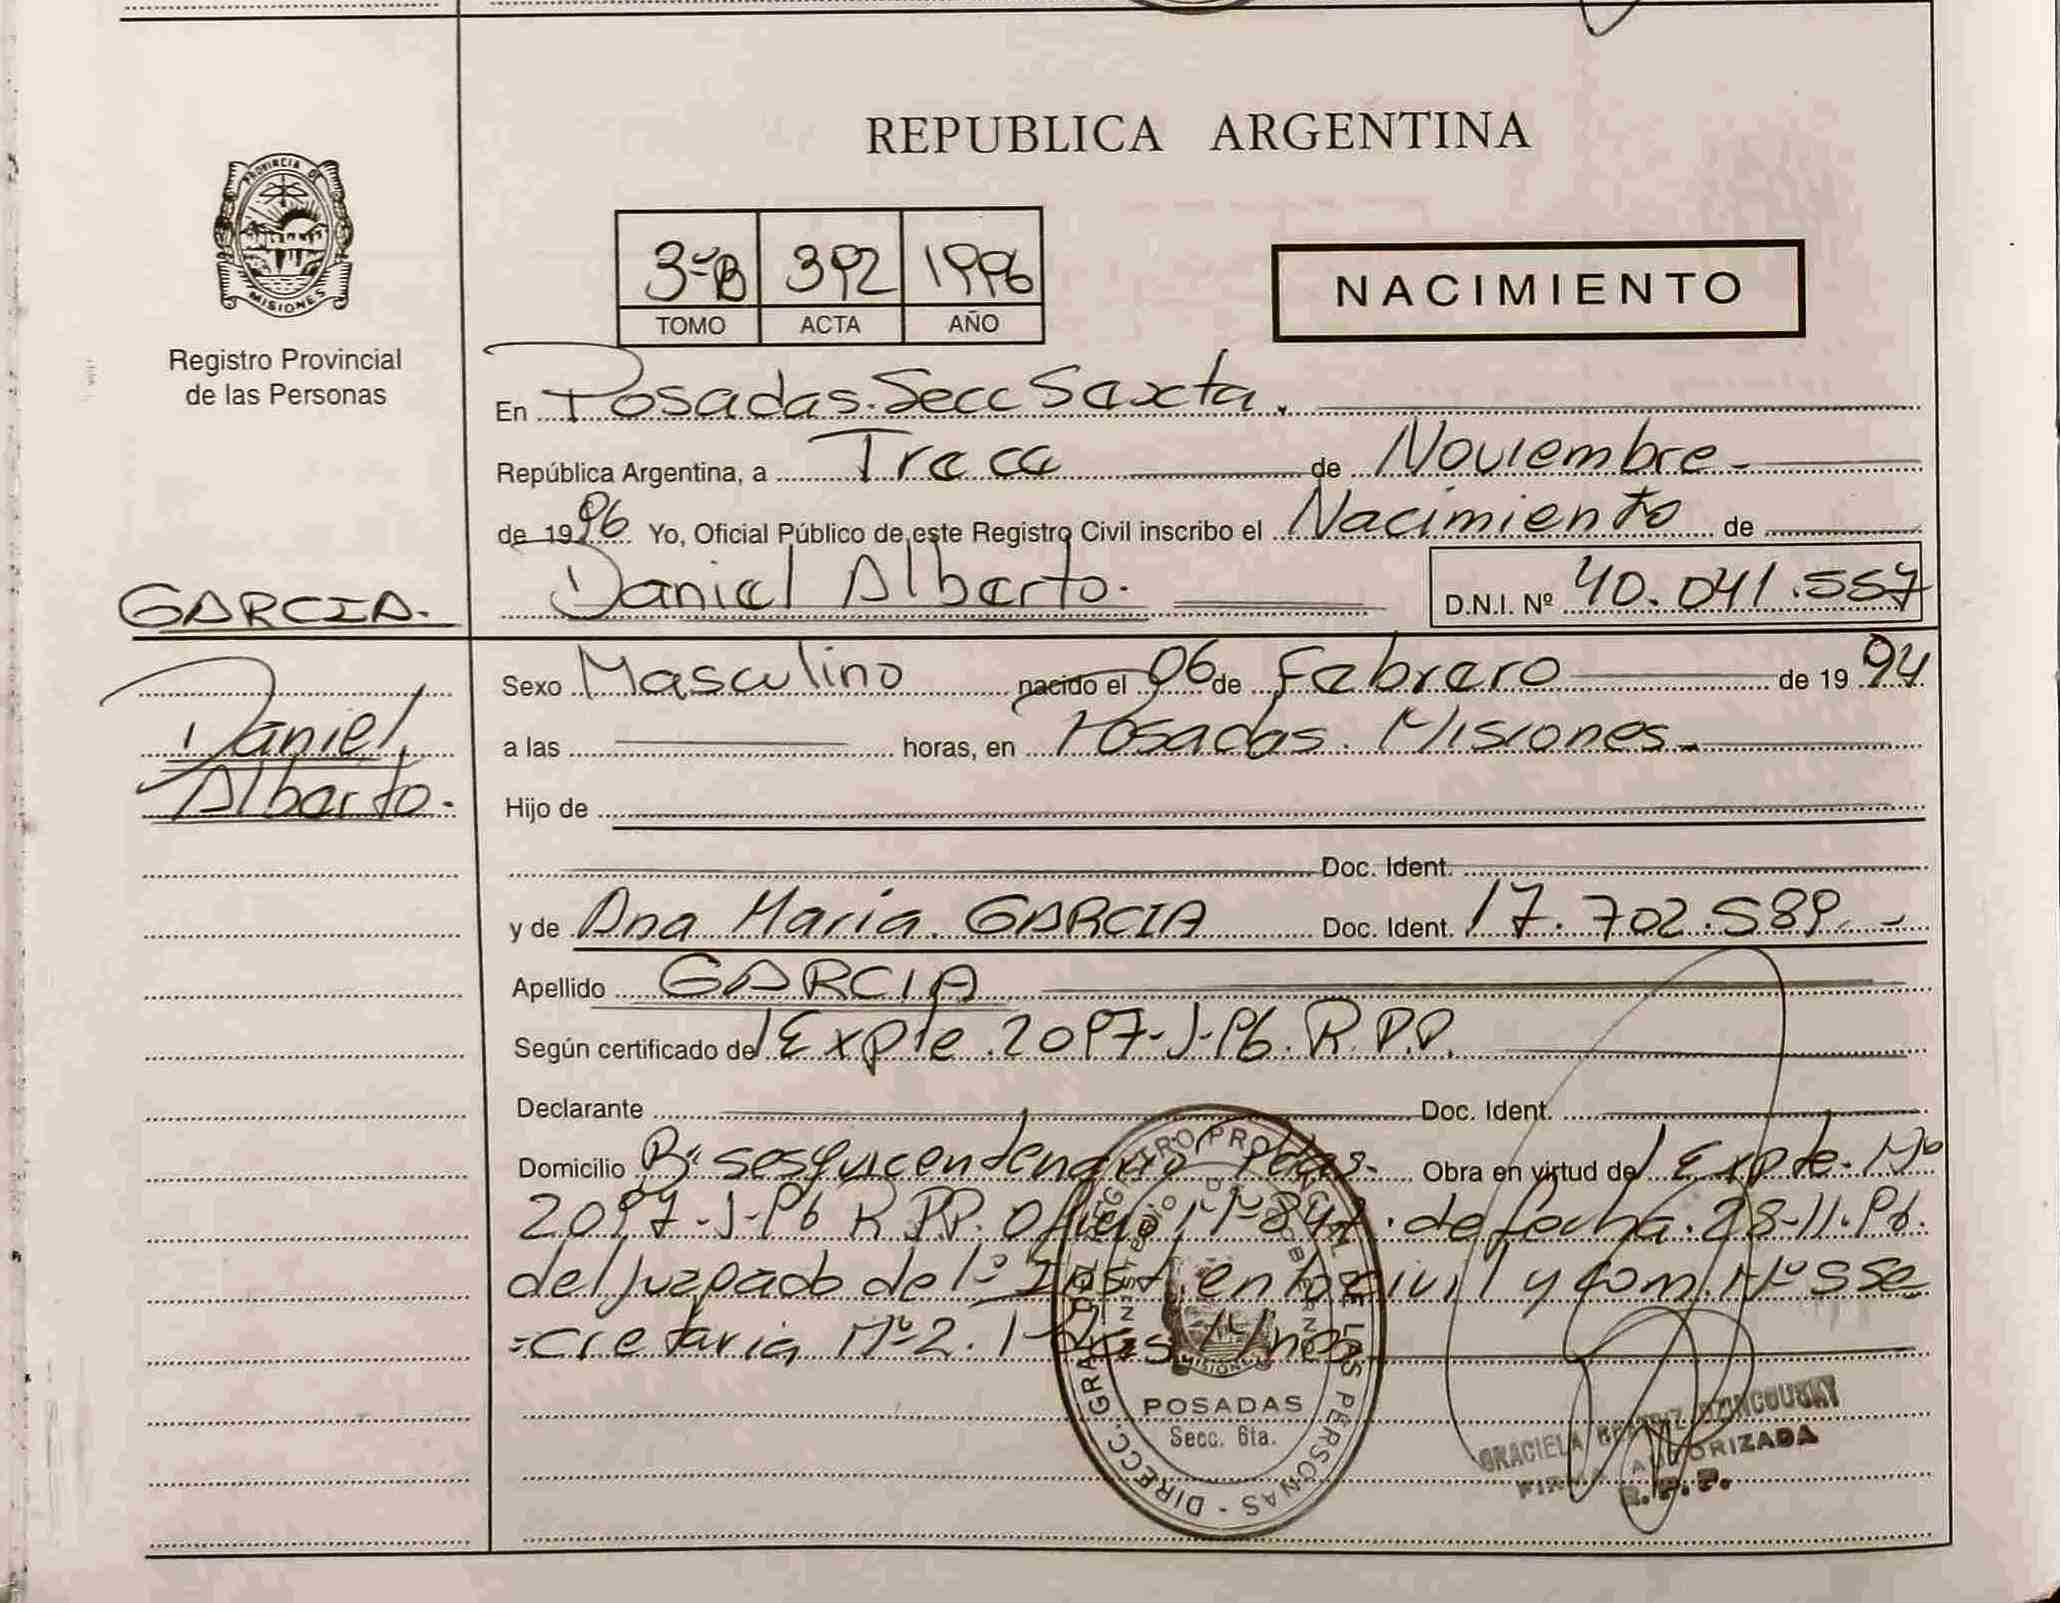 PROVINCIA DE
MISIONES
Registro Provincial
de las Personas
REPUBLICA ARGENTINA
3-B 392 1996
TOMO ACTA AÑO
NACIMIENTO
En Posadas. Secc Sexta.
República Argentina, a Trece de Noviembre
de 1996 Yo, Oficial Público de este Registro Civil inscribo el Nacimiento de
Daniel Alberto. D.N.I. Nº 40.041.557
GARCIA.
Daniel
Alberto.
Sexo Masculino nacido el 06 de Febrero de 1994
a las horas, en Posadas. Misiones
Hijo de
Doc. Ident.
y de Ana Maria GARCIA Doc. Ident. 17.702.589
Apellido GARCIA
Según certificado del Expte 2097-J-96. R.P.P.
Declarante Doc. Ident.
Domicilio Bº sesquicentenario Pdas. Obra en virtud del Expte. Nº
2097-J-96 R.P.P. Oficio Nº 847. de fecha. 28-11-96.
del juzgado de 1º Inst. en lo civil y Com. Nº 5 Se
=cretaria Nº 2.
DIRECC. GRAL. DEL REGISTRO PROVINCIAL DE LAS PERSONAS
MINISTERIO DE GOBIERNO
MISIONES
POSADAS
Secc. 6ta.
GRACIELA BEATRIZ
FIRMA AUTORIZADA
R.P.P.